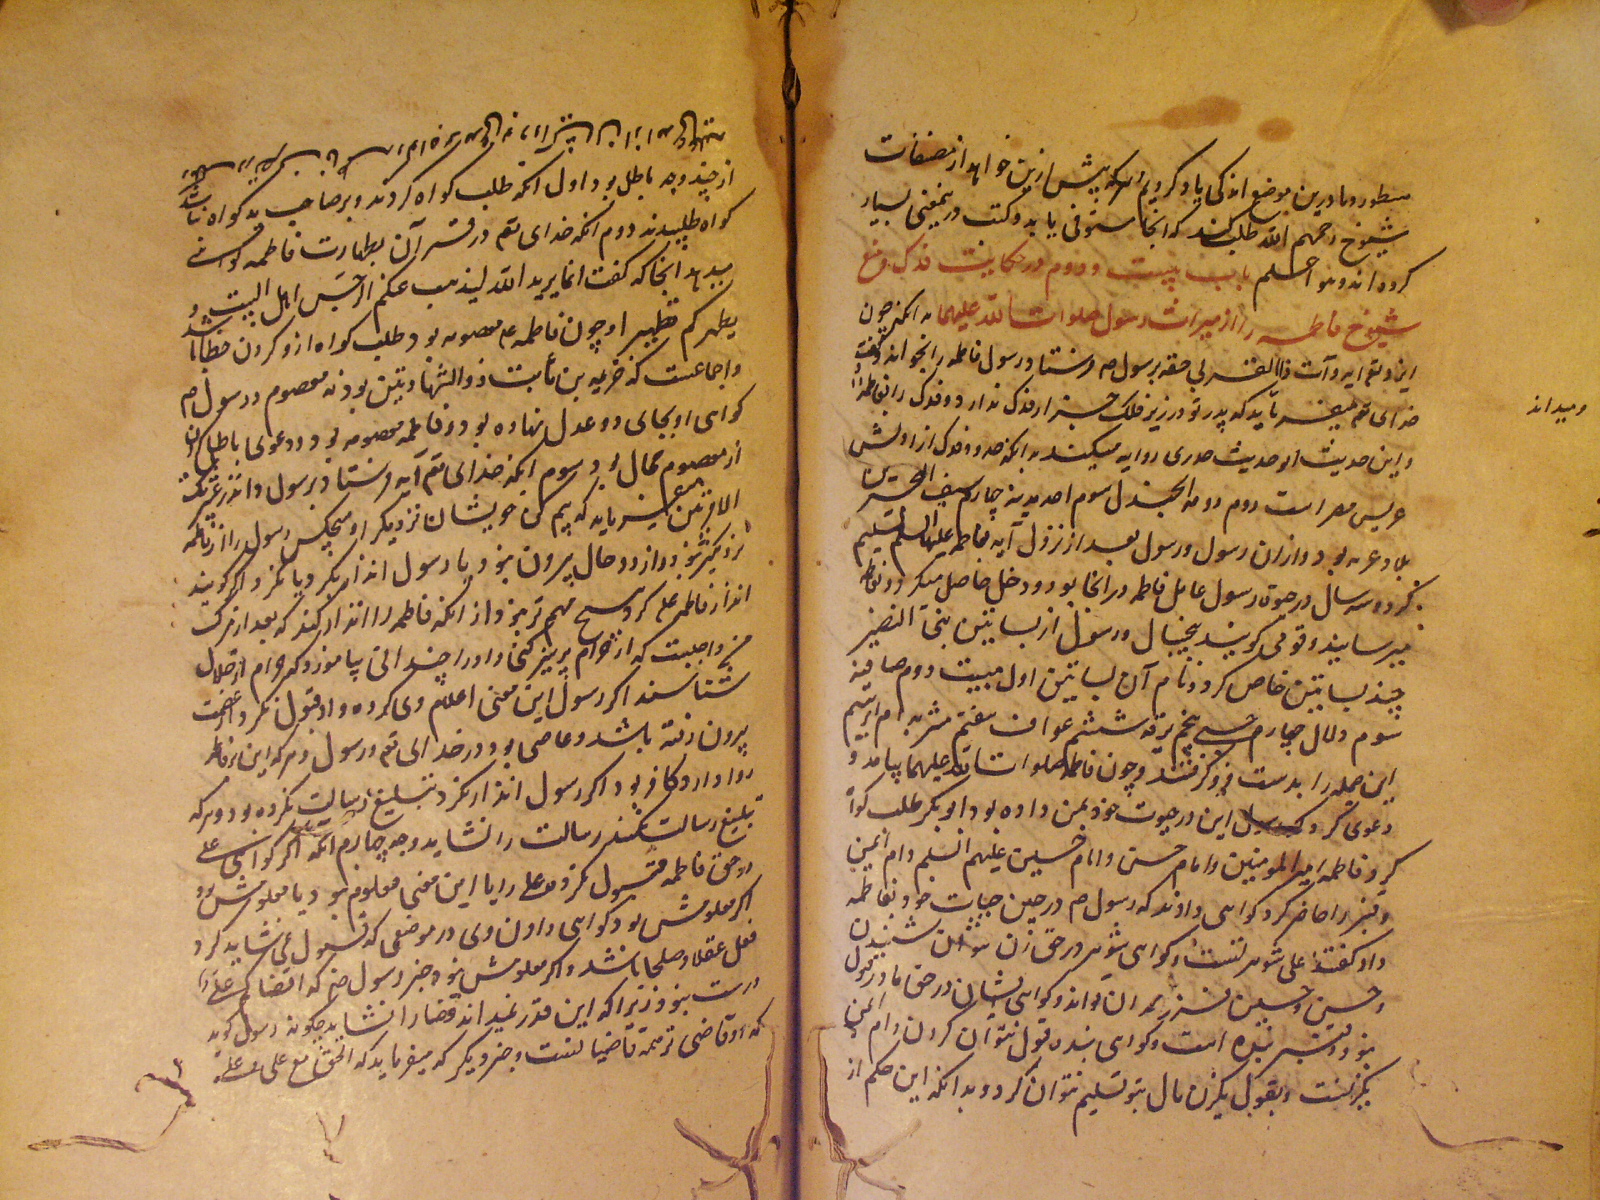 مسطور و ما درین موضع اندکی یاد کردیم هر که پیش ازین خواهد از مصنفات
شیوخ رحمهم الله طلب کند که آنجا مستوفی یابد و کتب درین معنی بسیار
کرده اند و هو اعلم باب بیست و دوم در حکایت فدک و منع
شیوخ فاطمه را از میراث رسول صلوات الله علیهما بدانکه چون
این آیه و آت ذا القربی حقه برسول ص فرستاد رسول فاطمه را بخواند و گفت
خدای تعم میفرماید که پدر تو در زیر فلک جز از فدک ندارد و فدک را بفاطمه داد
و این حدیث ابو حدیث خدری روایه میکند بدانکه حدود فدک از اولش
عریش مصر است دوم دومه الجندل سوم احد مدینه چهارم سیف البحر
بلاد عرب بود و ازان رسول و رسول بعد از نزول آیه بفاطمه علیها السلم تسلیم
کرد و سه سال در حیوة رسول عامل فاطمه در انجا بود و دخل حاصل میکرد و بفاطمه
میرسانید و قومی گویند پنج سال و رسول از بساتین بنی النضیر
چند بساتین خاص کرد و نام آن بساتین اول مبیت دوم صافیه
سوم دلال چهارم حسنی پنجم برقه ششم عواف هفتم مشربه ام ابرهیم
این جمله را بدست فرو گرفتند و چون فاطمه صلوات الله علیهما بیامد و
دعوی کرد که رسول این در حیوت خود بمن داده بود ابوبکر طلب گواه
کرد فاطمه امیر المومنین و امام حسن و امام حسین علیهم السلم و ام ایمن
و قنبر را حاضر کرد گواهی دادند که رسول ص در حین حیات خود بفاطمه
داد گفتند علی شوهر تست و گواهی شوهر در حق زن نتوان شنیدن
و حسن و حسین فرزندان تواند و گواهی ایشان در حق مادر قبول
نبود و قنبر بنده است و گواهی بنده قبول نتوان کردن و ام ایمن
یکزنست و بقول یکزن مال بتو تسلیم نتوان کرد و بدانکه این حکم از
و میداند
از چند وجه باطل بود اول آنکه طلب گواه کردند و بر صاحب ید گواه نباشد
گواه طلبیدند دوم آنکه خدای تعم در قرآن بطهارت فاطمه گواهی
میدهد آنجا که گفت انما یرید الله لیذهب عنکم الرجس اهل البیت و
یطهرکم تطهیرا و چون فاطمه ع معصومه بود طلب گواه از و کردن خطا باشد
و اجماعست که خزیمه بن ثابت ذو الشهادتین بود نه معصوم و رسول ص
گواهی او بجای دو عدل نهاده بود و فاطمه معصومه بود و دعوی باطل کردن
از معصوم محال بود سوم آنکه خدای تعم آیه فرستاد برسول و انذر عشیرتک
الاقربین میفرماید که بیم کن خویشان نزدیکتر او هیچکس رسول را از فاطمه
نزدیکتر نبود و از دو حال بیرون نبود یا رسول انذار بکرد یا نکرد اگر گویند
انذار فاطمه علی کرد هیچ مهم تر نبود از آنکه فاطمه را انذار کند که بعد از ترک
واجبست که از حرام پرهیز کنی و او را چندانی بیاموزد که حرام از حلال
شناسند اگر رسول این معنی اعلام وی کرده و او قبول نکرد از عصمت
بیرون رفته باشد و عاصی بود در خدای تعم و رسول و هر که این بر فاطمه
روا دارد کافر بود اگر رسول انذار نکرد تبلیغ رسالت نکرده بود و هر که
تبلیغ رسالت نکند رسالت را نشاید وجه چهارم آنکه اگر گواهی علی
در حق فاطمه قبول نکردند علی را یا این معنی معلوم بود یا معلومش نبود
اگر معلومش بود گواهی دادن وی در موضعی که قبول نمی شاید کرد
فعل عقلا و صلحا نباشد و اگر معلومش نبود خبر رسول ص که اقضاکم علی
درست نبود زیرا که این قدر نمیداند قضا را نشاید چگونه رسول گوید
که او قاضی ترهمه قاضیانست و خبر دیگر که میفرماید که الحق مع علی و علی